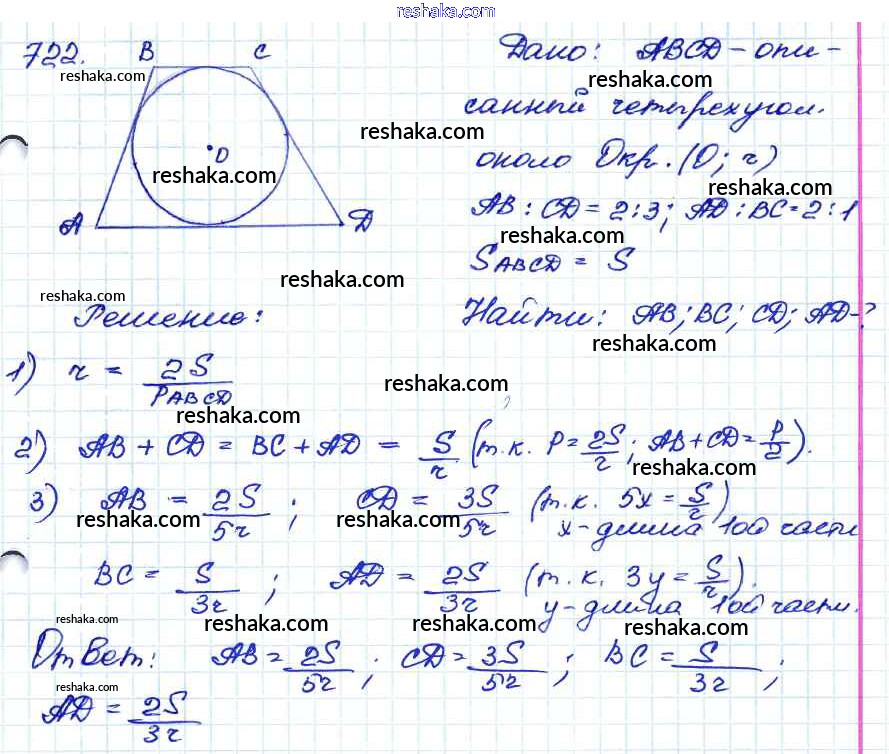 reshaka.com
722. B C Дано: ABCD - опи-
reshaka.com reshaka.com reshaka.com
санный четырехугол.
reshaka.com
O около Окр. (O; r)
reshaka.com reshaka.com
A D AB : CD = 2:3; AD : BC = 2:1
SABCD = S
reshaka.com
reshaka.com
Решение: Найти: AB; BC; CD; AD-?
reshaka.com
1) r = 2S / PABCD
reshaka.com
reshaka.com
2) AB + CD = BC + AD = S/r (т.к. P = 2S/r; AB + CD = P/2).
reshaka.com
3) AB = 2S/5r; CD = 3S/5r (т.к. 5x = S/r)
reshaka.com reshaka.com reshaka.com
x - длина 1ой части
BC = S/3r; AD = 2S/3r (т.к. 3y = S/r).
reshaka.com
y - длина 1ой части.
reshaka.com reshaka.com reshaka.com
Ответ: AB = 2S/5r; CD = 3S/5r; BC = S/3r;
reshaka.com reshaka.com reshaka.com reshaka.com
AD = 2S/3r